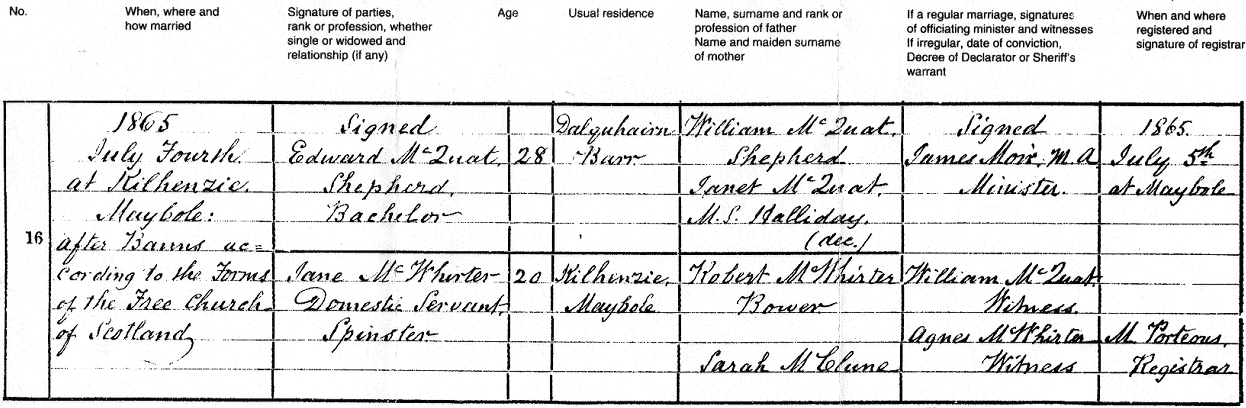 No.
When, where and
how married
Signature of parties,
rank or profession, whether
single or widowed and
relationship (if any)
Age
Usual residence
Name, surname and rank or
profession of father
Name and maiden surname
of mother
If a regular marriage, signatures
of officiating minister and witnesses
If irregular, date of conviction,
Decree of Declarator or Sheriff's
warrant
When and where
registered and
signature of registrar
16
1865
July Fourth
at Kilhenzie
Maybole:
after Banns ac=
cording to the Forms
of the Free Church
of Scotland
Signed
Edward McQuat
Shepherd
Bachelor
28
Dalquhairn
Barr
William McQuat
Shepherd
Janet McQuat
M.S. Halliday
(dec.)
Signed
James Moir M.A
Minister
1865
July 5th
at Maybole
Jane McWhirter
Domestic Servant
Spinster
20
Kilhenzie
Maybole
Robert McWhirter
Bower
Sarah McClune
William McQuat
Witness
Agnes McWhirter
Witness
M. Porteous
Registrar